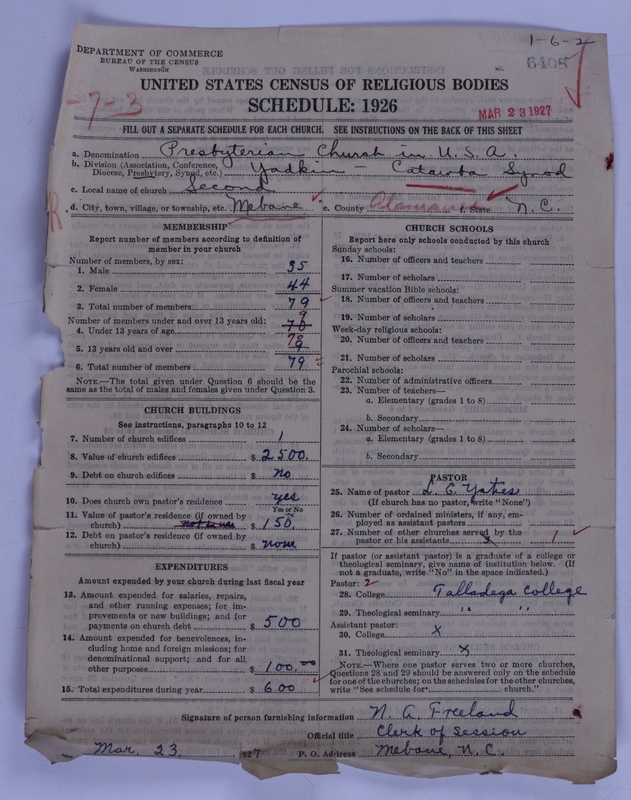 1-6-2
6408
DEPARTMENT OF COMMERCE
BUREAU OF THE CENSUS
WASHINGTON
UNITED STATES CENSUS OF RELIGIOUS BODIES
SCHEDULE: 1926
-7-3
MAR 23 1927
FILL OUT A SEPARATE SCHEDULE FOR EACH CHURCH. SEE INSTRUCTIONS ON THE BACK OF THIS SHEET
a. Denomination Presbyterian Church in U.S.A.
b. Division (Association, Conference, Diocese, Presbytery, Synod, etc.) Yadkin - Catawba Synod
c. Local name of church Second
d. City, town, village, or township, etc. Mebane e. County Alamance f. State N.C.
R
MEMBERSHIP
Report number of members according to definition of
member in your church
Number of members, by sex:
1. Male 35
2. Female 44
3. Total number of members 79
Number of members under and over 13 years old:
4. Under 13 years of age 70 9
5. 13 years old and over 9 70
6. Total number of members 79
NOTE.—The total given under Question 6 should be the
same as the total of males and females given under Question 3.
CHURCH BUILDINGS
See instructions, paragraphs 10 to 12
7. Number of church edifices 1
8. Value of church edifices $ 2500.
9. Debt on church edifices $ no
10. Does church own pastor's residence yes
Yes or No
11. Value of pastor's residence (if owned by
church) $ 150
12. Debt on pastor's residence (if owned by
church) $ none
EXPENDITURES
Amount expended by your church during last fiscal year
13. Amount expended for salaries, repairs,
and other running expenses; for im-
provements or new buildings; and for
payments on church debt $ 500
14. Amount expended for benevolences, in-
cluding home and foreign missions; for
denominational support; and for all
other purposes $ 100.00
15. Total expenditures during year $ 600
CHURCH SCHOOLS
Report here only schools conducted by this church
Sunday schools:
16. Number of officers and teachers
17. Number of scholars
Summer vacation Bible schools:
18. Number of officers and teachers
19. Number of scholars
Week-day religious schools:
20. Number of officers and teachers
21. Number of scholars
Parochial schools:
22. Number of administrative officers
23. Number of teachers—
a. Elementary (grades 1 to 8)
b. Secondary
24. Number of scholars—
a. Elementary (grades 1 to 8)
b. Secondary
PASTOR
25. Name of pastor C. Yates
(If church has no pastor, write "None")
26. Number of ordained ministers, if any, em-
ployed as assistant pastors
27. Number of other churches served by the
pastor or his assistants 1
If pastor (or assistant pastor) is a graduate of a college or
theological seminary, give name of institution below. (If
not a graduate, write "No" in the space indicated.)
Pastor: 2
28. College Talladega College
29. Theological seminary " "
Assistant pastor:
30. College x
31. Theological seminary x
NOTE.—Where one pastor serves two or more churches,
Questions 28 and 29 should be answered only on the schedule
for one of the churches; on the schedules for the other churches,
write "See schedule for church."
Signature of person furnishing information N. A. Freeland
Official title Clerk of Session
Mar. 23, 1927 P. O. Address Mebane, N.C.